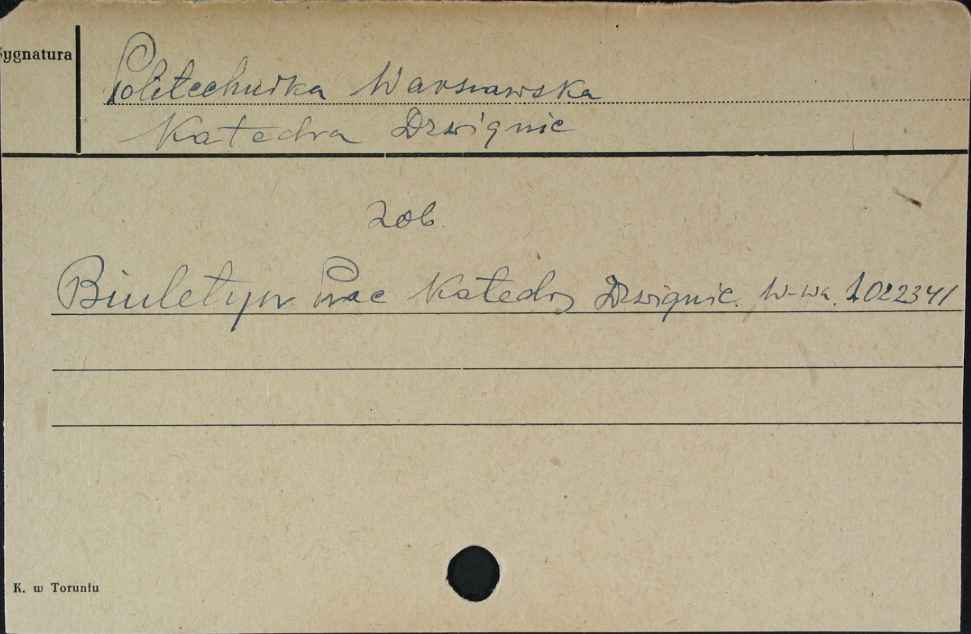 Sygnatura
Politechnika Warszawska
Katedra Dzwignic
zob.
Biuletyn Prac Katedry Dzwignic. W-wa. 1022341
K. w Toruniu